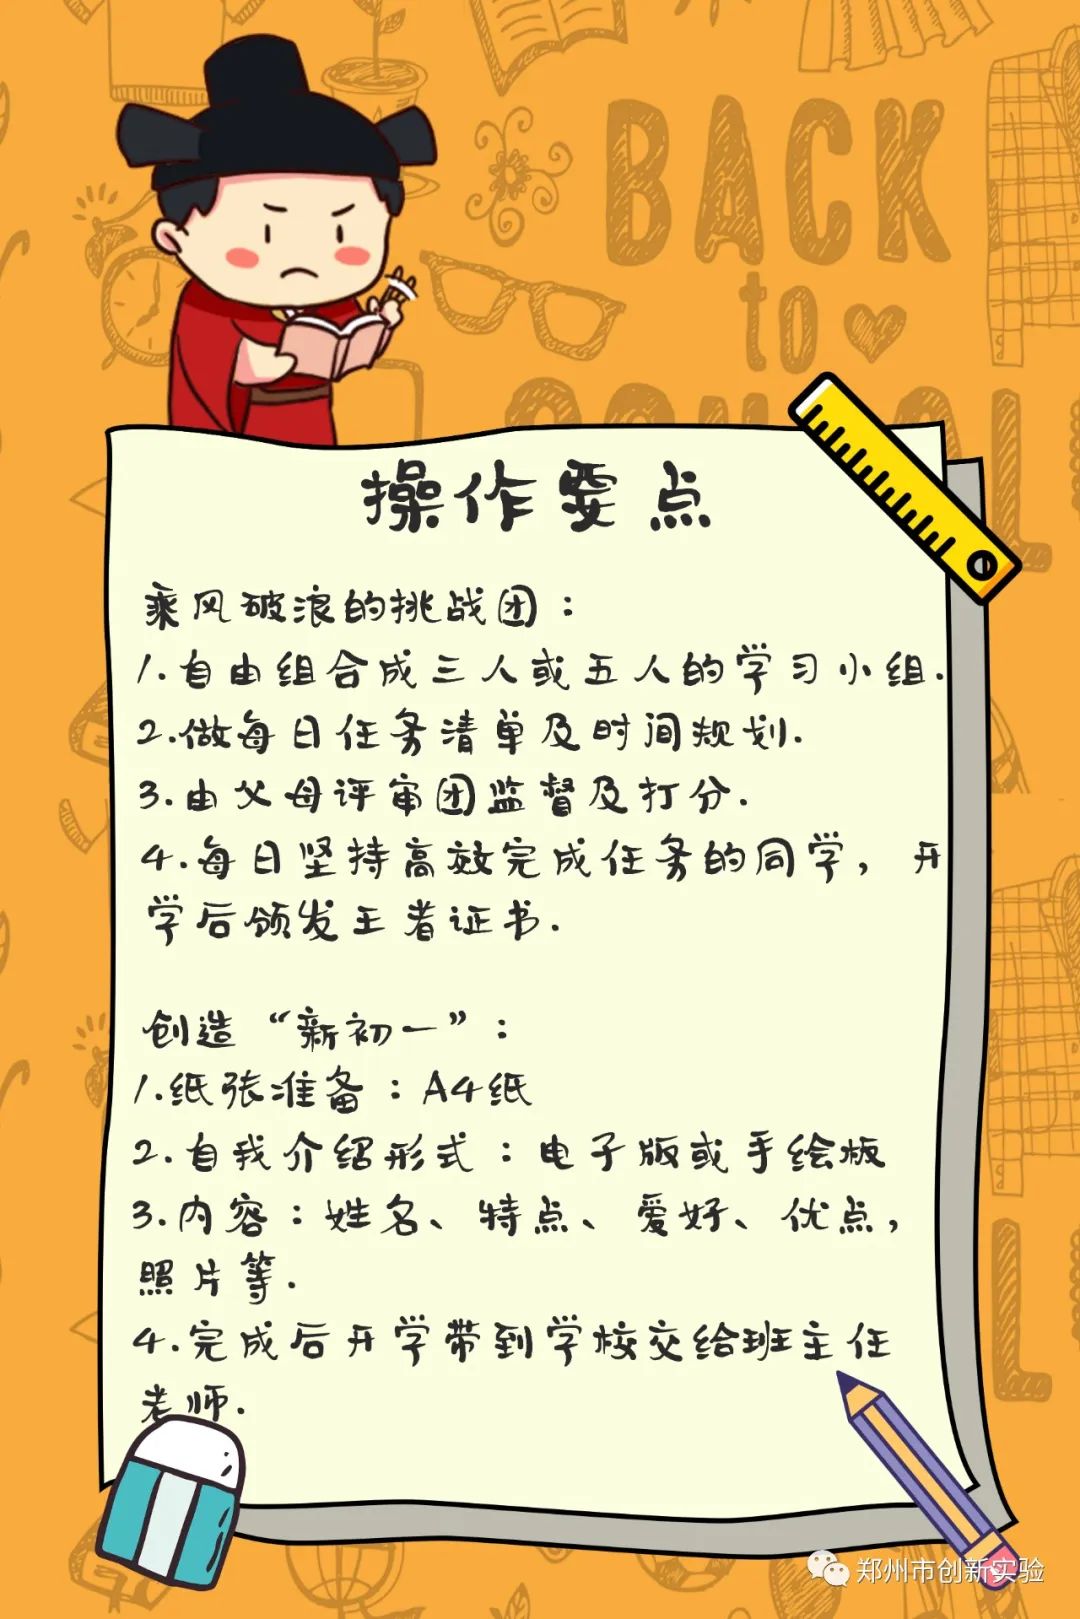 BACK
to
操作要点
乘风破浪的挑战团：
1.自由组合成三人或五人的学习小组.
2.做每日任务清单及时间规划.
3.由父母评审团监督及打分.
4.每日坚持高效完成任务的同学，开
学后颁发王者证书.
创造“新初一”：
1.纸张准备：A4纸
2.自我介绍形式：电子版或手绘版
3.内容：姓名、特点、爱好、优点，
照片等.
4.完成后开学带到学校交给班主任
老师.
郑州市创新实验